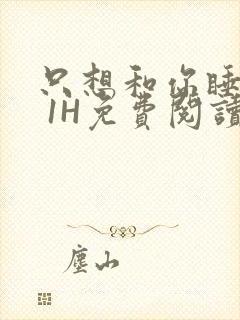 只想和你睡
1H免費閱讀
塵山